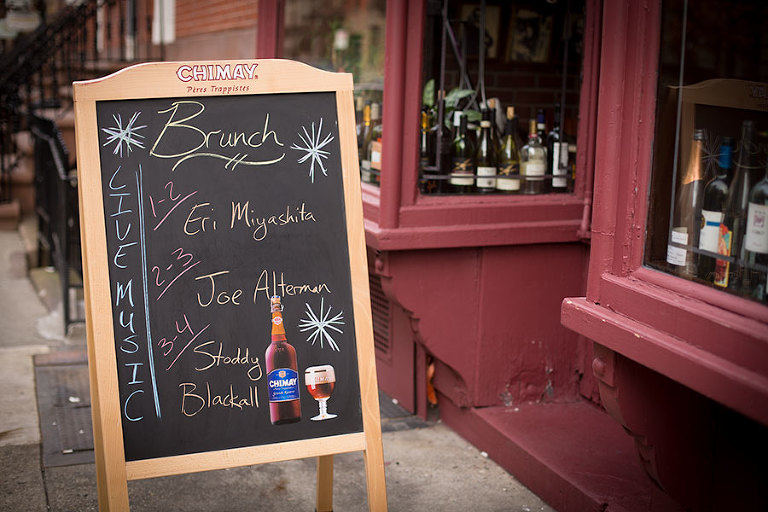 CHIMAY
Pères Trappistes
Brunch
LIVE MUSIC
1-2
Eri Miyashita
2-3
Joe Alterman
3-4
Stoddy
Blackall
CHIMAY